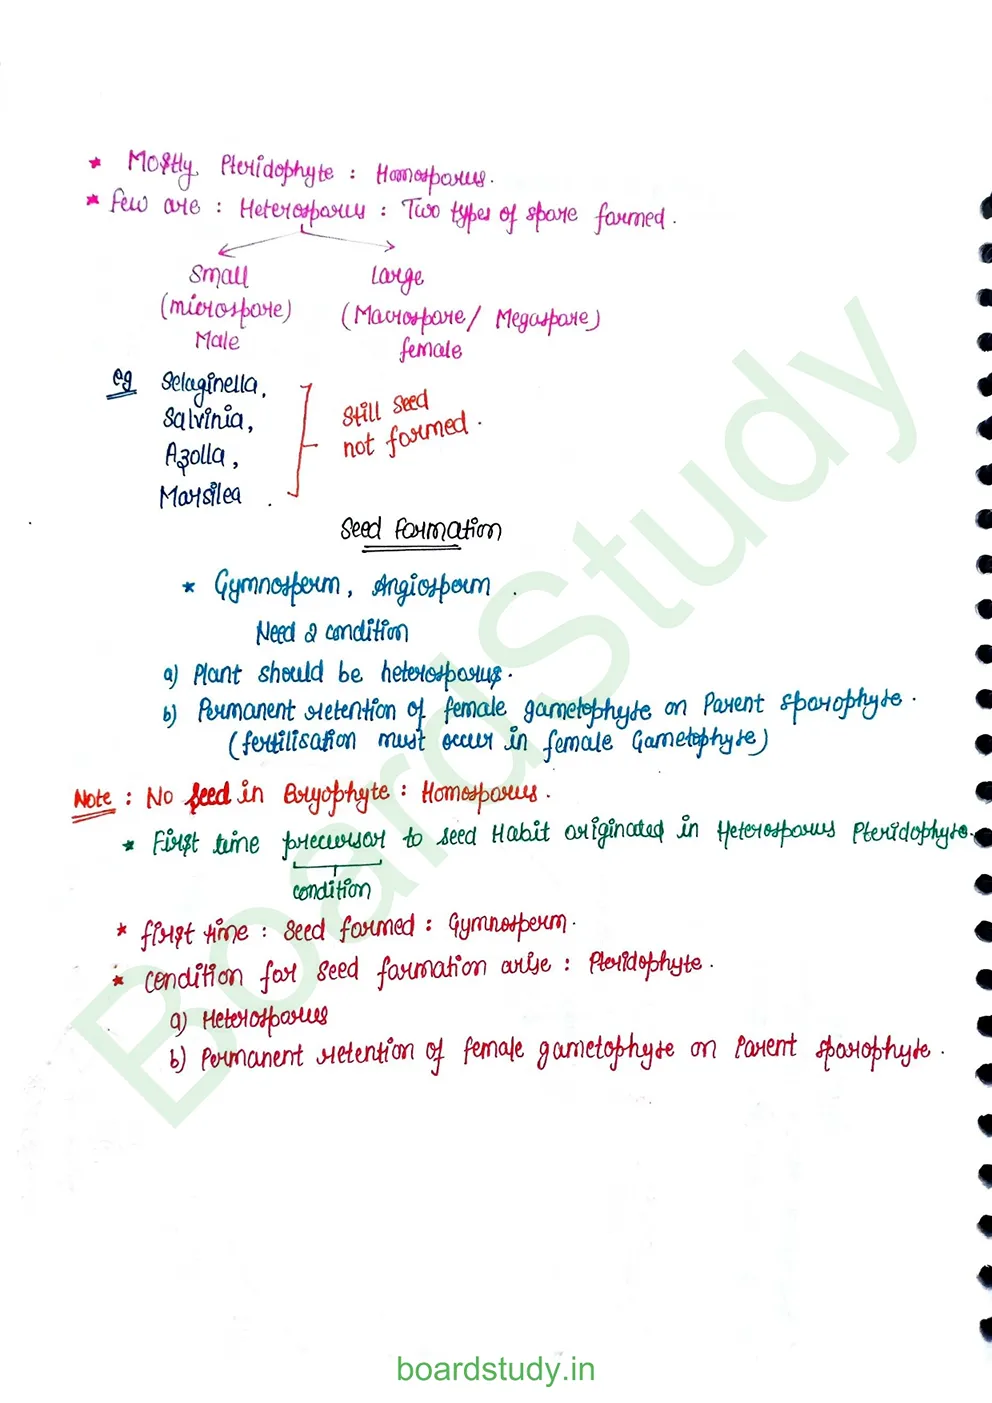 * Mostly Pteridophyte : Homosporus.
* Few are : Heterosporus : Two types of spore formed.
Small Large
(microspore) (Macrospore/ Megaspore)
Male female
eg Selaginella,
Salvinia,
Azolla,
Marsilea.
Still seed
not formed.
Seed Formation
* Gymnosperm, Angiosperm.
Need 2 condition
a) Plant should be heterosporus.
b) Permanent retention of female gametophyte on Parent sporophyte.
(fertilisation must occur in female Gametophyte)
Note : No seed in Bryophyte : Homosporus.
* First time precursor to seed Habit originated in Heterosporus Pteridophyte.
condition
* first time : seed formed : Gymnosperm.
* condition for seed formation arise : Pteridophyte.
a) Heterosporus
b) Permanent retention of female gametophyte on Parent sporophyte.
BoardStudy
boardstudy.in